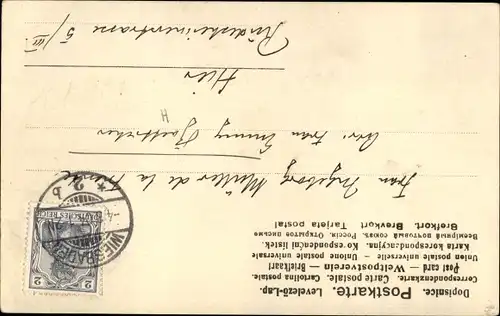 Dopisnice. Postkarte. Levelező-Lap.
Correspondenzkarte. Carte postale. Cartolina postale.
Post card — Weltpostverein — Briefkaart
Union postale universelle — Unione postale universale
Karta korespondencyjna. Korespondenční lístek.
Всемірный почтовый союз. Россія. Открытое письмо
Brefkort. Brevkort. Tarjeta postal
Frau Ingeborg Müller de la
Adr: Frau Emmy
H
Hier
Rüdesheimerstrasse 5/III.
WIESBADEN
* 2 b
DEUTSCHES REICH
2 2